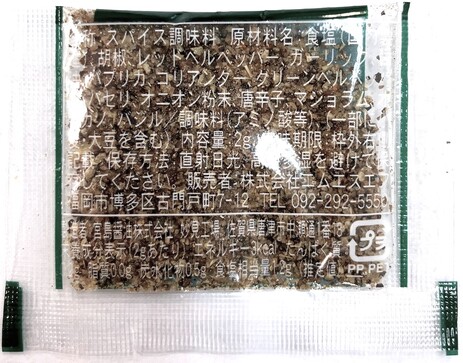 スパイス調味料 原材料名:食塩(国
胡椒、レッドベルペッパー、ガーリック
パプリカ、コリアンダー、グリーンベルペ
パセリ、オニオン粉末、唐辛子、マジョラム
バジル/調味料(アミノ酸等)、(一部に
大豆を含む) 内容量:2g 賞味期限:枠外右
記載 保存方法:直射日光、高温多湿を避けて保
してください 販売者:株式会社エムエスエ
福岡市博多区古門戸町7-12 TEL 092-292-5552
者:宮島醤油株式会社 妙見工場:佐賀県唐津市中瀬通1番13
成分表示(2gあたり)エネルギー3kcal たんぱく質
脂質0.0g 炭水化物0.5g 食塩相当量1.2g 推定値
プラ
PP,PE